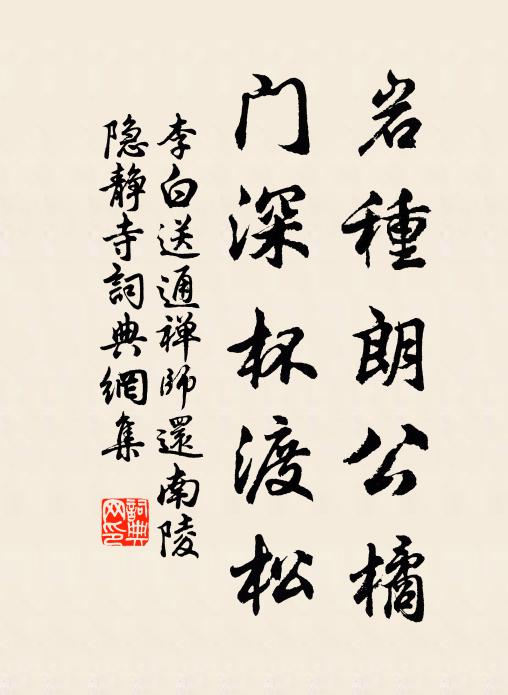 岩種朗公橘
门深杯渡松
李白送通禅師還南陵
隐静寺詞典網集
詞典
网印